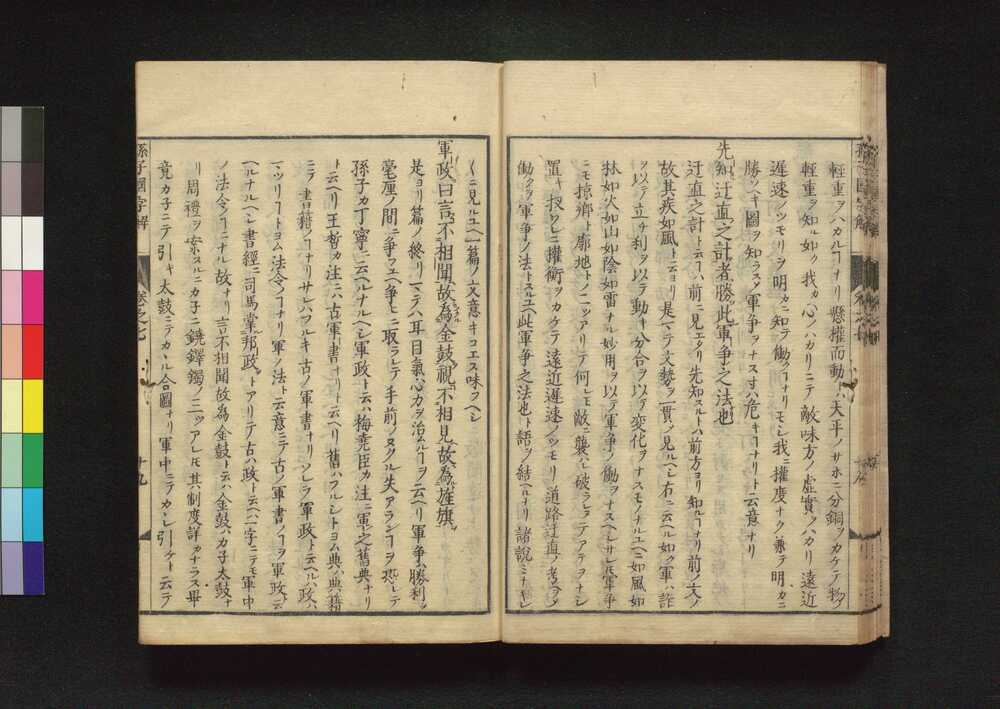 輕重ヲハカルヿナリ懸權而動トハ天平ノサホニ分銅ヲカケテ物ノ
輕重ヲ知ル如ク我カ心ノハカリニテ敵味方ノ虚實ヲハカリ遠近
遲速ノツモリヲ明カニ知テ働クヿナリモシ我ニ權度ナク兼テ明カニ
勝ツヘキ圖ヲ知ラスノ軍爭ヲナス寸ハ危キヿナリト云意ナリ
先知迂直之計者勝此軍爭之法也
迂直之計ト云ヿハ前ニ見エタリ先知スルトハ前方ヨリ知ルヿナリ前ノ文ノ
故其疾如風ト云ヨリ是マテ文勢ヲ一貫ノ見ルヘシ右ニ云ヘル如ク軍ハ詐
ヲ以テ立チ利ヲ以テ動キ分合ヲ以テ變化ヲナスモノナルユヘニ如風如
林如火如山如陰如雷ナル妙用ヲ以テ軍爭ノ働ヲナスヘシサレ𪜈軍爭
ニモ掠鄕ト廓地トノ二ツアリテ何レモ敵ニ襲ハレ破ラレテアテヲナシ
置キ扨ワレニ權衡ヲカケテ遠近遲速ノツモリ道路迂直ノ考ヲノ
働クヲ軍爭ノ法トスルユヘ此軍爭之法也ト語ヲ結ヘルナリ諸說ミナキレ
〱ニ見ルユヘ一篇ノ文意キコエス味フヘシ
軍政曰言不相聞故為金鼓視不相見故為旌旗
是ヨリ篇ノ終リマテハ耳目氣心力ヲ治ムルヿヲ云ヘリ軍爭ハ勝利ヲ
毫厘ノ間ニ爭フユヘ爭ヒニ取ラレテ手前ノヌクル失アランヿヲ恐レテ
孫子カ丁寧ニ云ヘルナルヘシ軍政ト云ハ梅堯臣カ注ニ軍之舊典ナリ
ト云ヘリ王晳カ注ニハ古軍書ナリト云ヘリ舊ハフルシトヨム典ハ典籍
ニテ書籍ノヿナリサレハフルキ古ノ軍書ナリソレヲ軍政ト云ヘルハ政ハ
マツリヿトヨム法令ノヿナリ軍ノ法ト云意ニテ古ノ軍書ノヿヲ軍政ト云
ヘルナルヘシ書經ニ司馬掌邦政トアリテ古ハ政ト云ヘハ一字ニテモ軍中
ノ法令ノヿニナル故ナリ言不相聞故為金鼓ト云ハ金鼓ハカ子太鼓ナ
リ周禮ヲ案スルニカ子ニ鐃鐸鐲ノ三ツアレ𪜈其制度詳カナラス畢
竟カ子ニテ引キ太鼓ニテカヽル合圖ナリ軍中ニテカヽレ引ケト云テ
孫子國字解
卷之七
十九